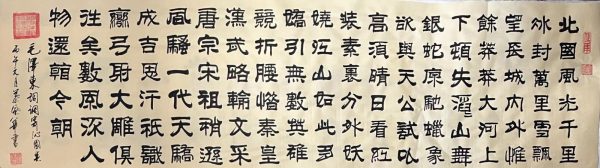 北國風光千里
冰封萬里雪飄
望長城內外惟
餘莽莽大河上
下頓失滔滔山舞
銀蛇原馳蠟象
欲與天公試比
高須晴日看紅
裝素裹分外妖
嬈江山如此多
嬌引無數英雄
競折腰惜秦皇
漢武略輸文采
唐宗宋祖稍遜
風騷一代天驕
成吉思汗祇識
彎弓射大雕俱
往矣數風流人
物還看今朝
毛澤東詞調寄沁園春
丙午 書